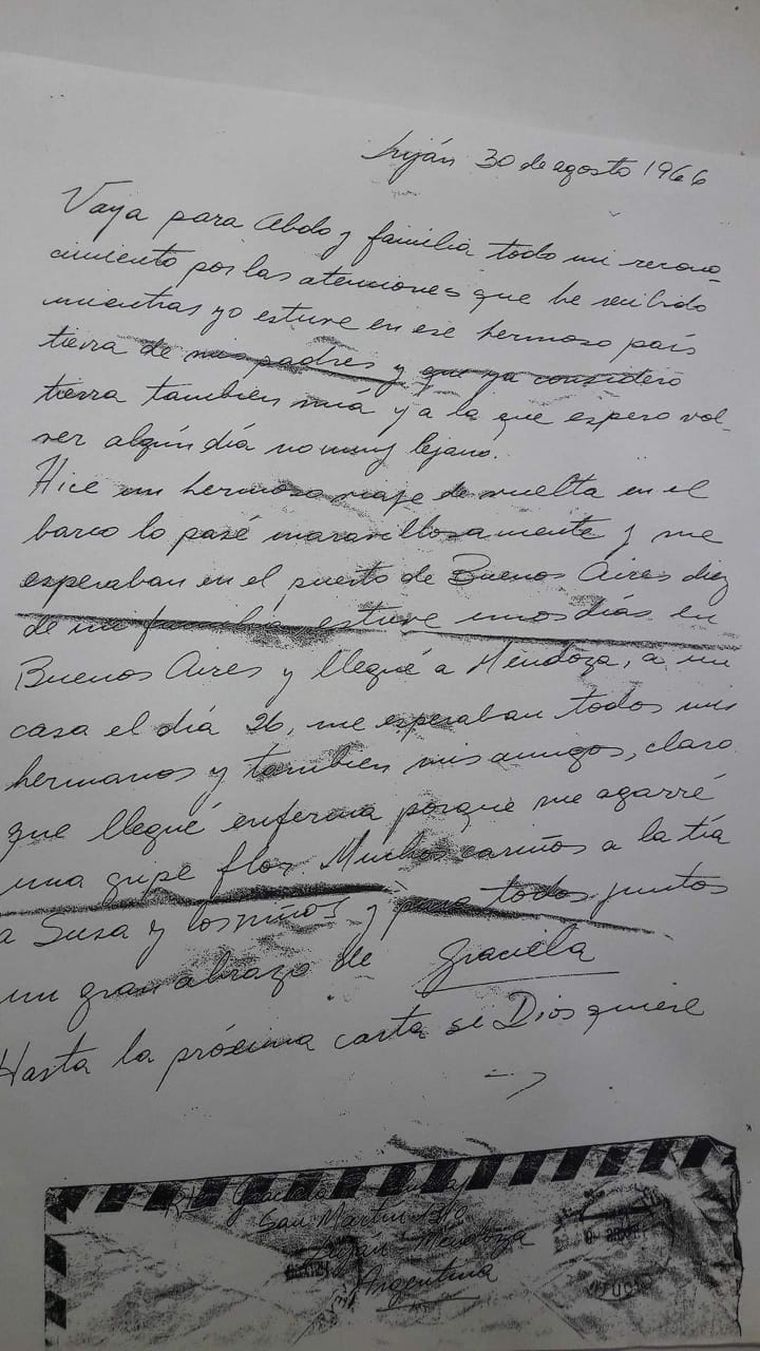 Luján 30 de agosto 1966
Vaya para Abdo y familia todo mi recono-
cimiento por las atenciones que he recibido
mientras yo estuve en ese hermoso país
tierra de mis padres y que ya considero
tierra tambien miá y a la que espero vol-
ver algún día no muy lejano.
Hice un hermoso viaje de vuelta en el
barco lo pasé maravillosamente y me
esperaban en el puerto de Buenos Aires diez
de mi familia estuve unos días en
Buenos Aires y llegué a Mendoza, a mi
casa el día 26, me esperaban todos mis
hermanos y tambien mis amigos, claro
que llegué enferma porque me agarré
una gripe flor. Muchos cariños a la tía
a Susa y los niños y para todos juntos
un gran abrazo de Graciela
Hasta la próxima carta si Dios quiere
Graciela
San Martin
Luján Mendoza
Argentina